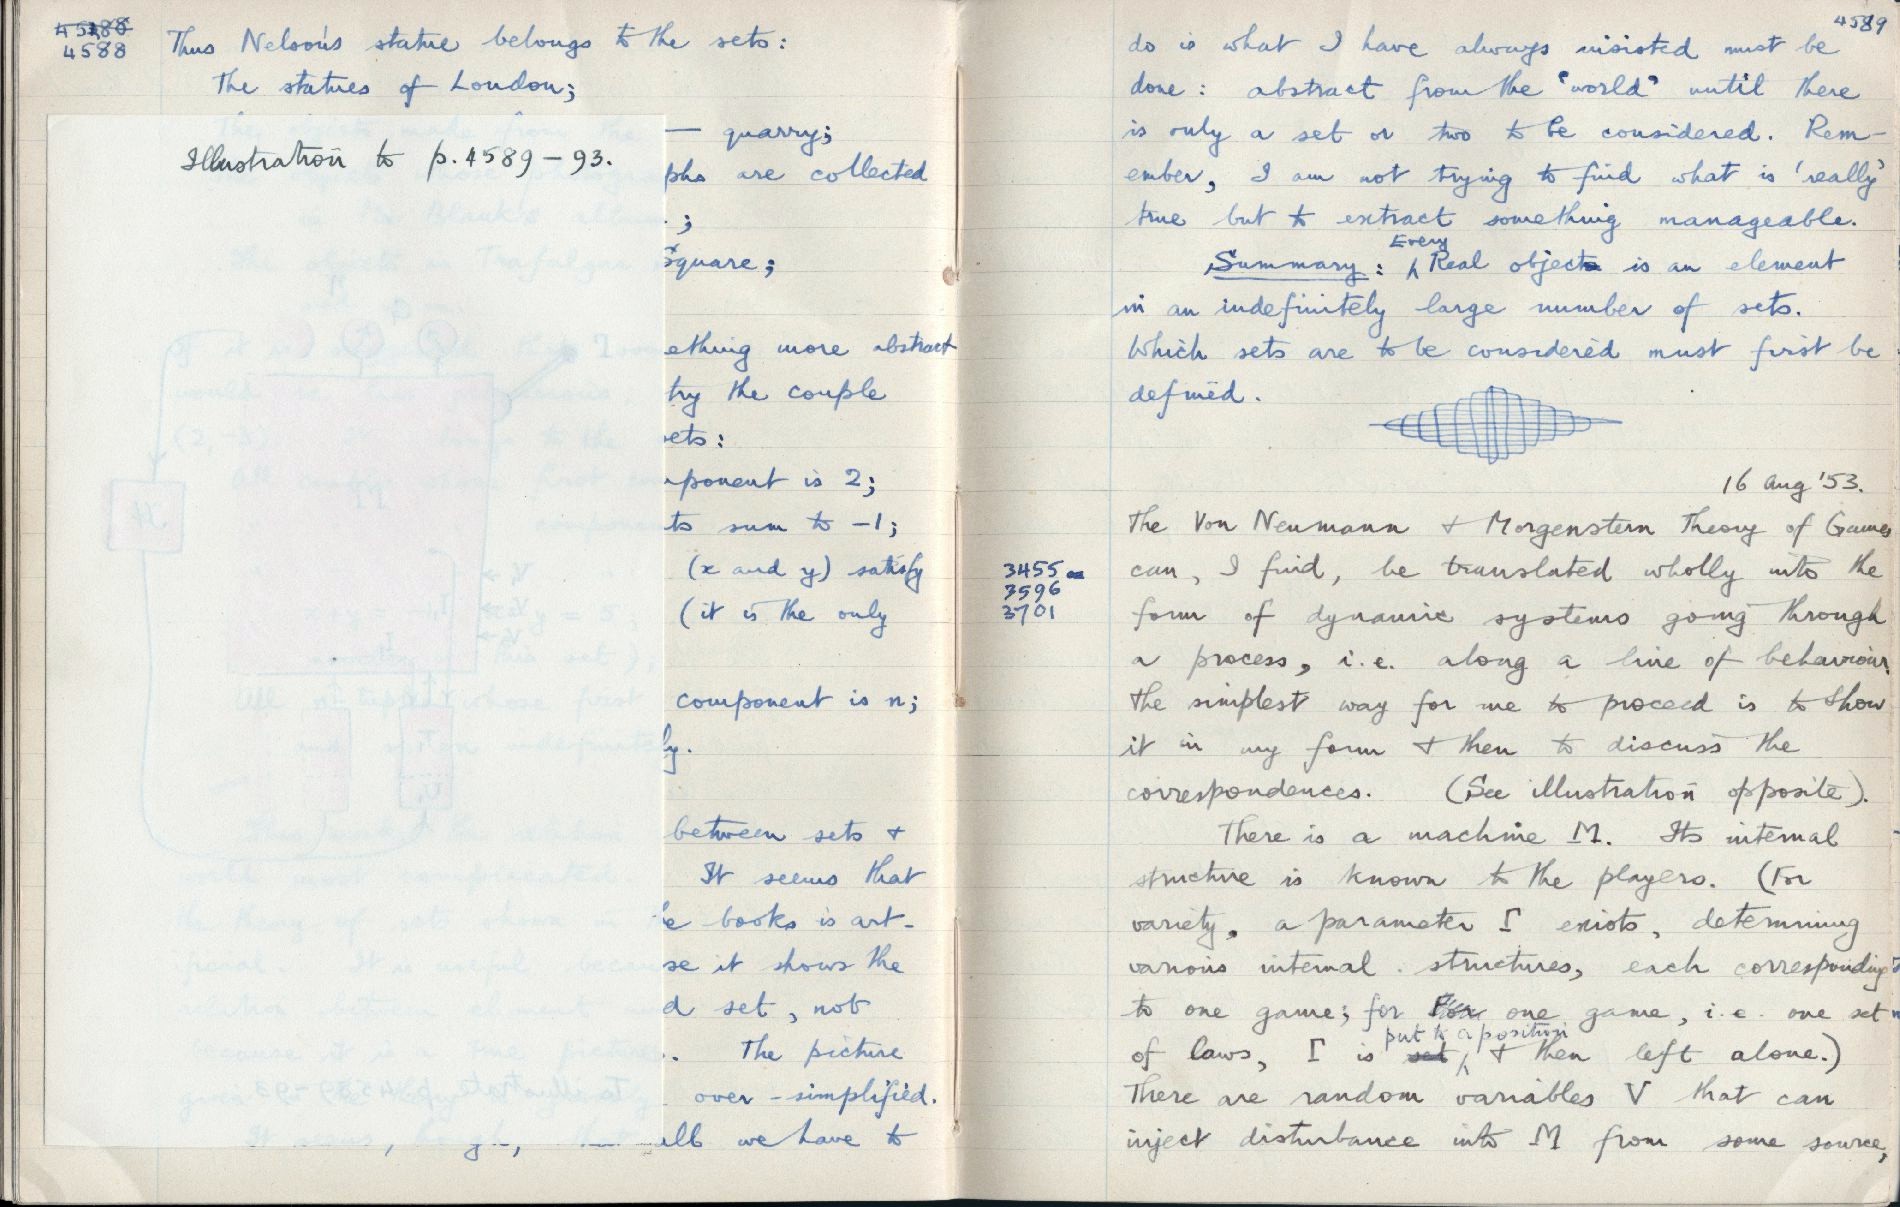 4588
4588
Thus Nelson's statue belongs to the sets:
The statues of London;
— quarry;
Illustration to p.4589-93.
phs are collected
. ;
Square;
ething more abstract
try the couple
sets:
mponent is 2;
ts sum to -1;
(x and y) satisfy
(it is the only
component is n;
ly.
between sets +
It seems that
he books is art-
se it shows the
d set, not
. The picture
over-simplified.
all we have to
4589
do is what I have always insisted must be
done: abstract from the 'world' until there
is only a set or two to be considered. Rem-
ember, I am not trying to find what is 'really'
true but to extract something manageable.
Summary: Every Real object is an element
in an indefinitely large number of sets.
Which sets are to be considered must first be
defined.
16 Aug '53.
The Von Neumann + Morgenstern Theory of Games
3455
can, I find, be translated wholly into the
3596
3701
form of dynamic systems going through
a process, i.e. along a line of behaviour.
The simplest way for me to proceed is to show
it in my form + then to discuss the
correspondences. (See illustration opposite).
There is a machine M. Its internal
structure is known to the players. (For
variety, a parameter Γ exists, determining
various internal structures, each corresponding
to one game; for one game, i.e. one set
of laws, Γ is put to a position, + then left alone.)
There are random variables V that can
inject disturbance into M from some source,